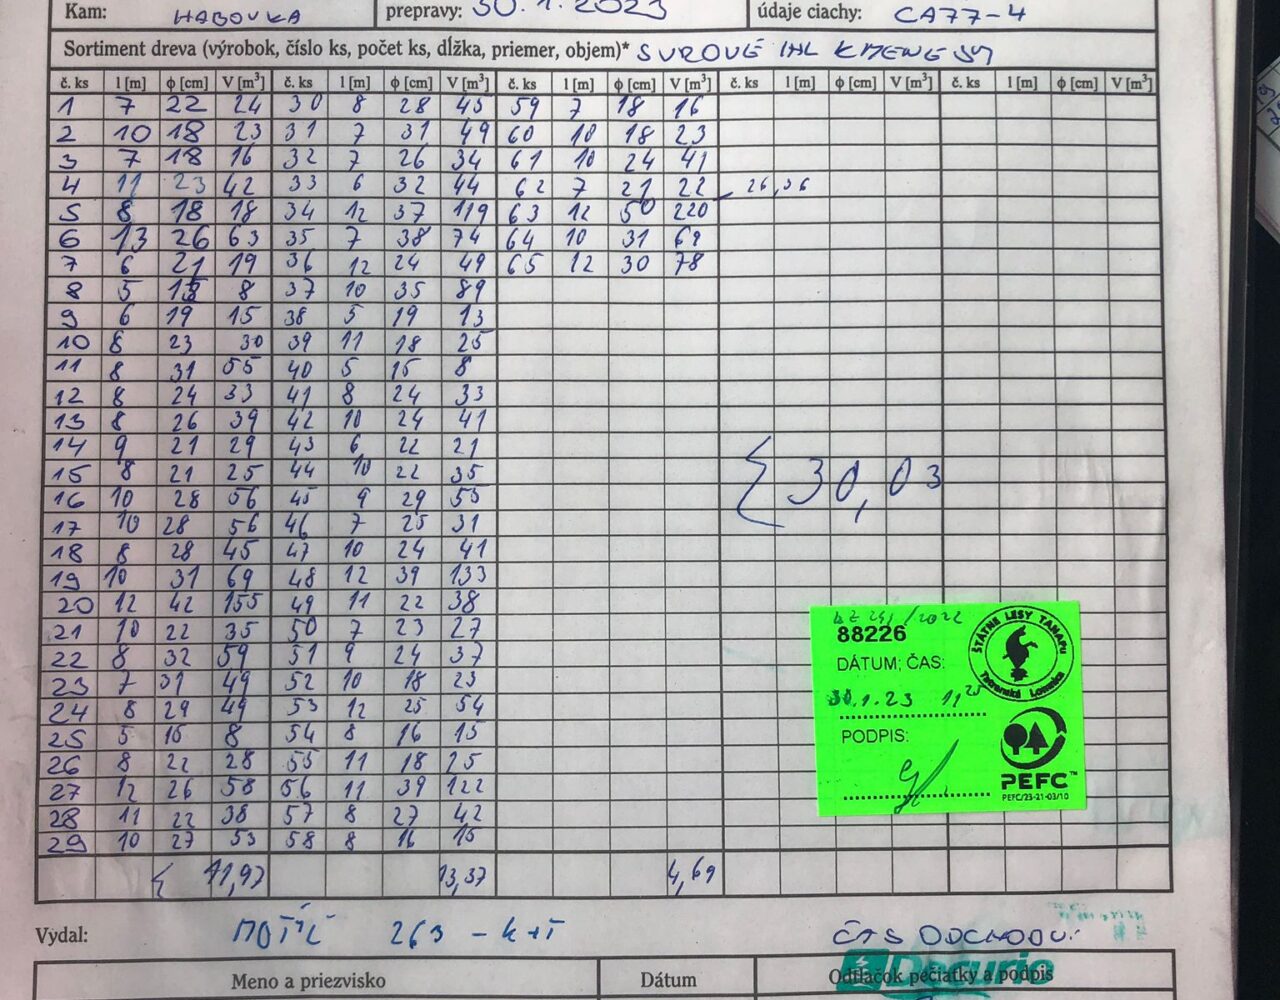 Kam: HABOVKA prepravy: 30.1.2023 údaje ciachy: CA77-4
Sortiment dreva (výrobok, číslo ks, počet ks, dĺžka, priemer, objem)* SUROVÉ IHL KMENE SM
č. ks l [m] ϕ [cm] V [m³] č. ks l [m] ϕ [cm] V [m³] č. ks l [m] ϕ [cm] V [m³] č. ks l [m] ϕ [cm] V [m³] č. ks l [m] ϕ [cm] V [m³]
1 7 22 24 30 8 28 45 59 7 18 16
2 10 18 23 31 7 31 49 60 10 18 23
3 7 18 16 32 7 26 34 61 10 24 41
4 11 23 42 33 6 32 44 62 7 21 22 26,36
5 8 18 18 34 12 37 119 63 12 50 220
6 13 26 63 35 7 38 74 64 10 31 69
7 6 21 19 36 12 24 49 65 12 30 78
8 5 15 8 37 10 35 89
9 6 19 15 38 5 19 13
10 8 23 30 39 11 18 25
11 8 31 55 40 5 15 8
12 8 24 33 41 8 24 33
13 8 26 39 42 10 24 41
14 9 21 29 43 6 22 21
15 8 21 25 44 10 22 35
16 10 28 56 45 9 29 55
17 10 28 56 46 7 25 31
18 8 28 45 47 10 24 41
19 10 31 69 48 12 39 133
20 12 42 155 49 11 22 38
21 10 22 35 50 7 23 27
22 8 32 59 51 9 24 37
23 7 31 49 52 10 18 23
24 8 29 49 53 12 25 54
25 5 15 8 54 8 16 15
26 8 22 28 55 11 18 25
27 12 26 58 56 11 39 122
28 11 22 38 57 8 27 42
29 10 27 53 58 8 16 15
30,03
88226
DÁTUM; ČAS:
30.1.23 11,25
PODPIS:
ŠTÁTNE LESY TANAPu
Tatranská Lomnica
PEFC™
PEFC/23-21-03/10
11,97 13,37 4,69
Vydal: 263 ČAS ODCHODU:
Meno a priezvisko Dátum Odtlačok pečiatky a podpis
Decurio